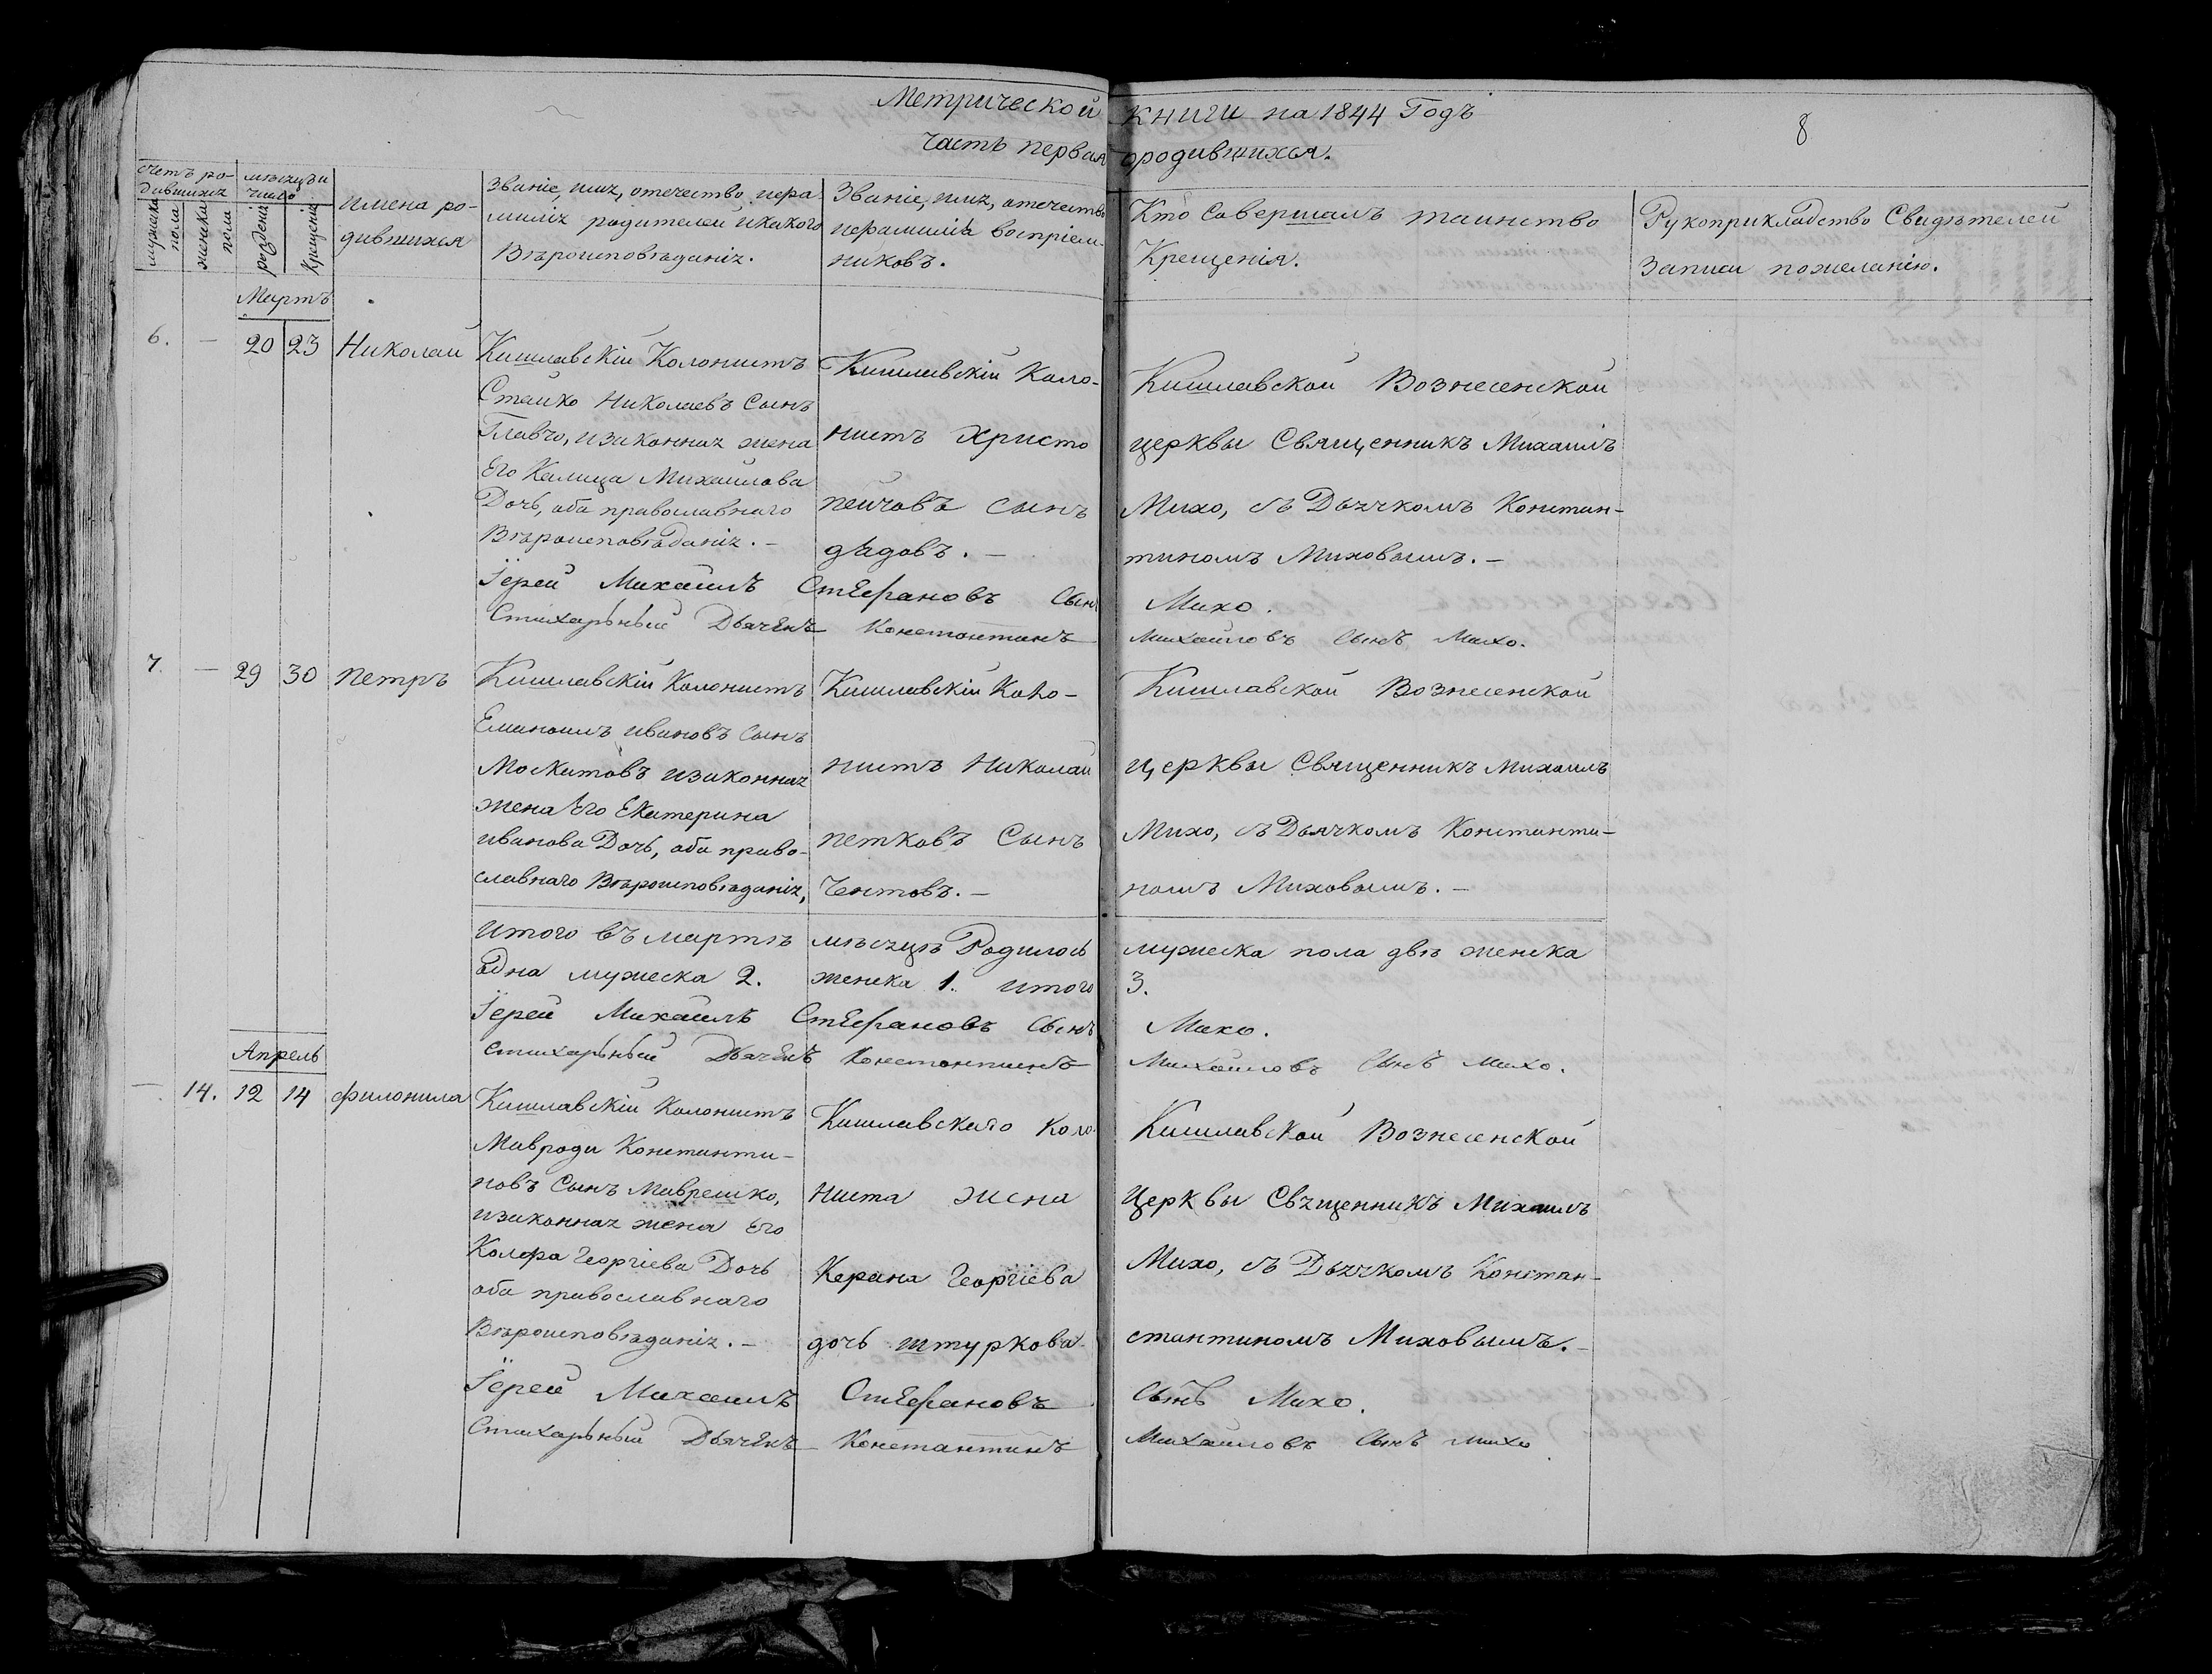 Метрической книги на 1844 Годъ
Часть первая ородившихся.
8
Счетъ ро-
дившихся
мужеска пола
женска пола
мѣсяцъ и
число
рожденія
Крещенія
имена ро-
дившихся
Званіе, имя, отечество, ифа-
милія родителей икакого
Вѣроисповѣданія.
Званіе, имя, отечество
ифамилія воспріем-
никовъ.
Кто Совершалъ таинство
Крещенія.
Рукоприкладство Свидѣтелей
Записи пожеланію.
Мартъ
6. — 20 23 Николай
Кишлавскій Колонистъ
Стайко Николаевъ Сынъ
Главчо, изаконная жена
Его Калица Михайлова
Дочь, оба православнаго
Вѣроисповѣданія. —
Кишлавскій Коло-
нистъ Христо
пейчовъ сынъ
дѣдовъ. —
Кишлавской Вознесенской
церквы Священникъ Михаилъ
Михо, съ Дьячкомъ Констан-
тиномъ Миховымъ. —
Іерей Михаилъ СтЕфановъ Сынъ Михо.
Стихарьный ДьячЕкъ Константинъ Михайловъ Сынъ Михо.
7. — 29 30 петръ
Кишлавскій Колонистъ
Емануилъ ивановъ Сынъ
Москитовъ изаконная
жена Его Екатерина
иванова Дочь, оба право-
славнаго Вѣроисповѣданія,
Кишлавскій Коло-
нистъ Николай
петковъ Сынъ
Чентовъ. —
Кишлавской Вознесенской
церквы Священникъ Михаилъ
Михо, съ Дьячкомъ Константи-
номъ Миховымъ. —
итого въ мартѣ мѣсяцѣ Родилось мужеска пола двѣ женска
одна мужеска 2. женска 1. итого 3.
Іерей Михаилъ СтЕфановъ Сынъ Михо.
стихарьный ДьячЕкъ Константинъ Михайловъ Сынъ Михо.
Апрель
— 14. 12 14 филонила
Кишлавскій Колонистъ
Мавроди Константи-
новъ Сынъ Маврешко,
изаконная жена Его
Калфа Георгіева Дочь
оба православнаго
Вѣроисповѣданія. —
Кишлавскаго Коло-
ниста жена
Керана Георгіева
дочь штуркова
Кишлавской Вознесенской
Церквы Священникъ Михаилъ
Михо, съ Дьячкомъ Констан-
стантиномъ Миховымъ. —
Іерей Михаилъ СтЕфановъ Сынъ Михо.
Стихарьный ДьячЕкъ Константинъ Михайловъ Сынъ михо